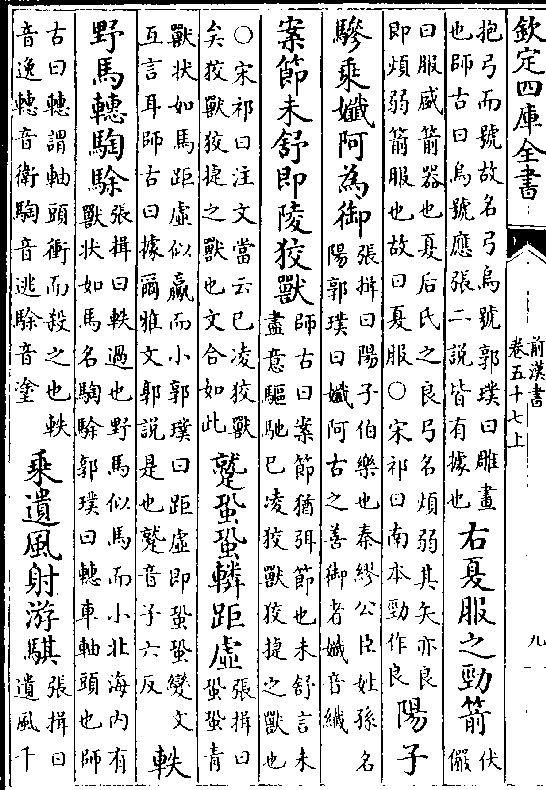 欽定四庫全書
前漢書
卷五十七上
九
抱弓而號故名弓烏號郭璞曰雕畫
也師古曰烏號應張二說皆有據也
右夏服之勁箭
伏
儼
曰服盛箭器也夏后氏之良弓名煩弱其矢亦良
即煩弱箭服也故曰夏服○宋祁曰南本勁作良
陽子
驂乘孅阿為御
張揖曰陽子伯樂也秦繆公臣姓孫名
陽郭璞曰孅阿古之善御者孅音纖
案節未舒即陵狡獸
師古曰案節猶弭節也未舒言未
盡意驅馳已凌狡獸狡捷之獸也
○宋祁曰注文當云已凌狡獸
矣狡獸狡捷之獸也文合如此
蹵蛩蛩轔距虛
張揖曰
蛩蛩青
獸狀如馬距虛似臝而小郭璞曰距虛即蛩蛩變文
互言耳師古曰據爾雅文郭說是也蹵音子六反
軼
野馬轊騊駼
張揖曰軼過也野馬似馬而小北海內有
獸狀如馬名騊駼郭璞曰轊車軸頭也師
古曰轊謂軸頭衝而殺之也軼
音逸轊音衛騊音逃駼音塗
乘遺風射游騏
張揖曰
遺風千